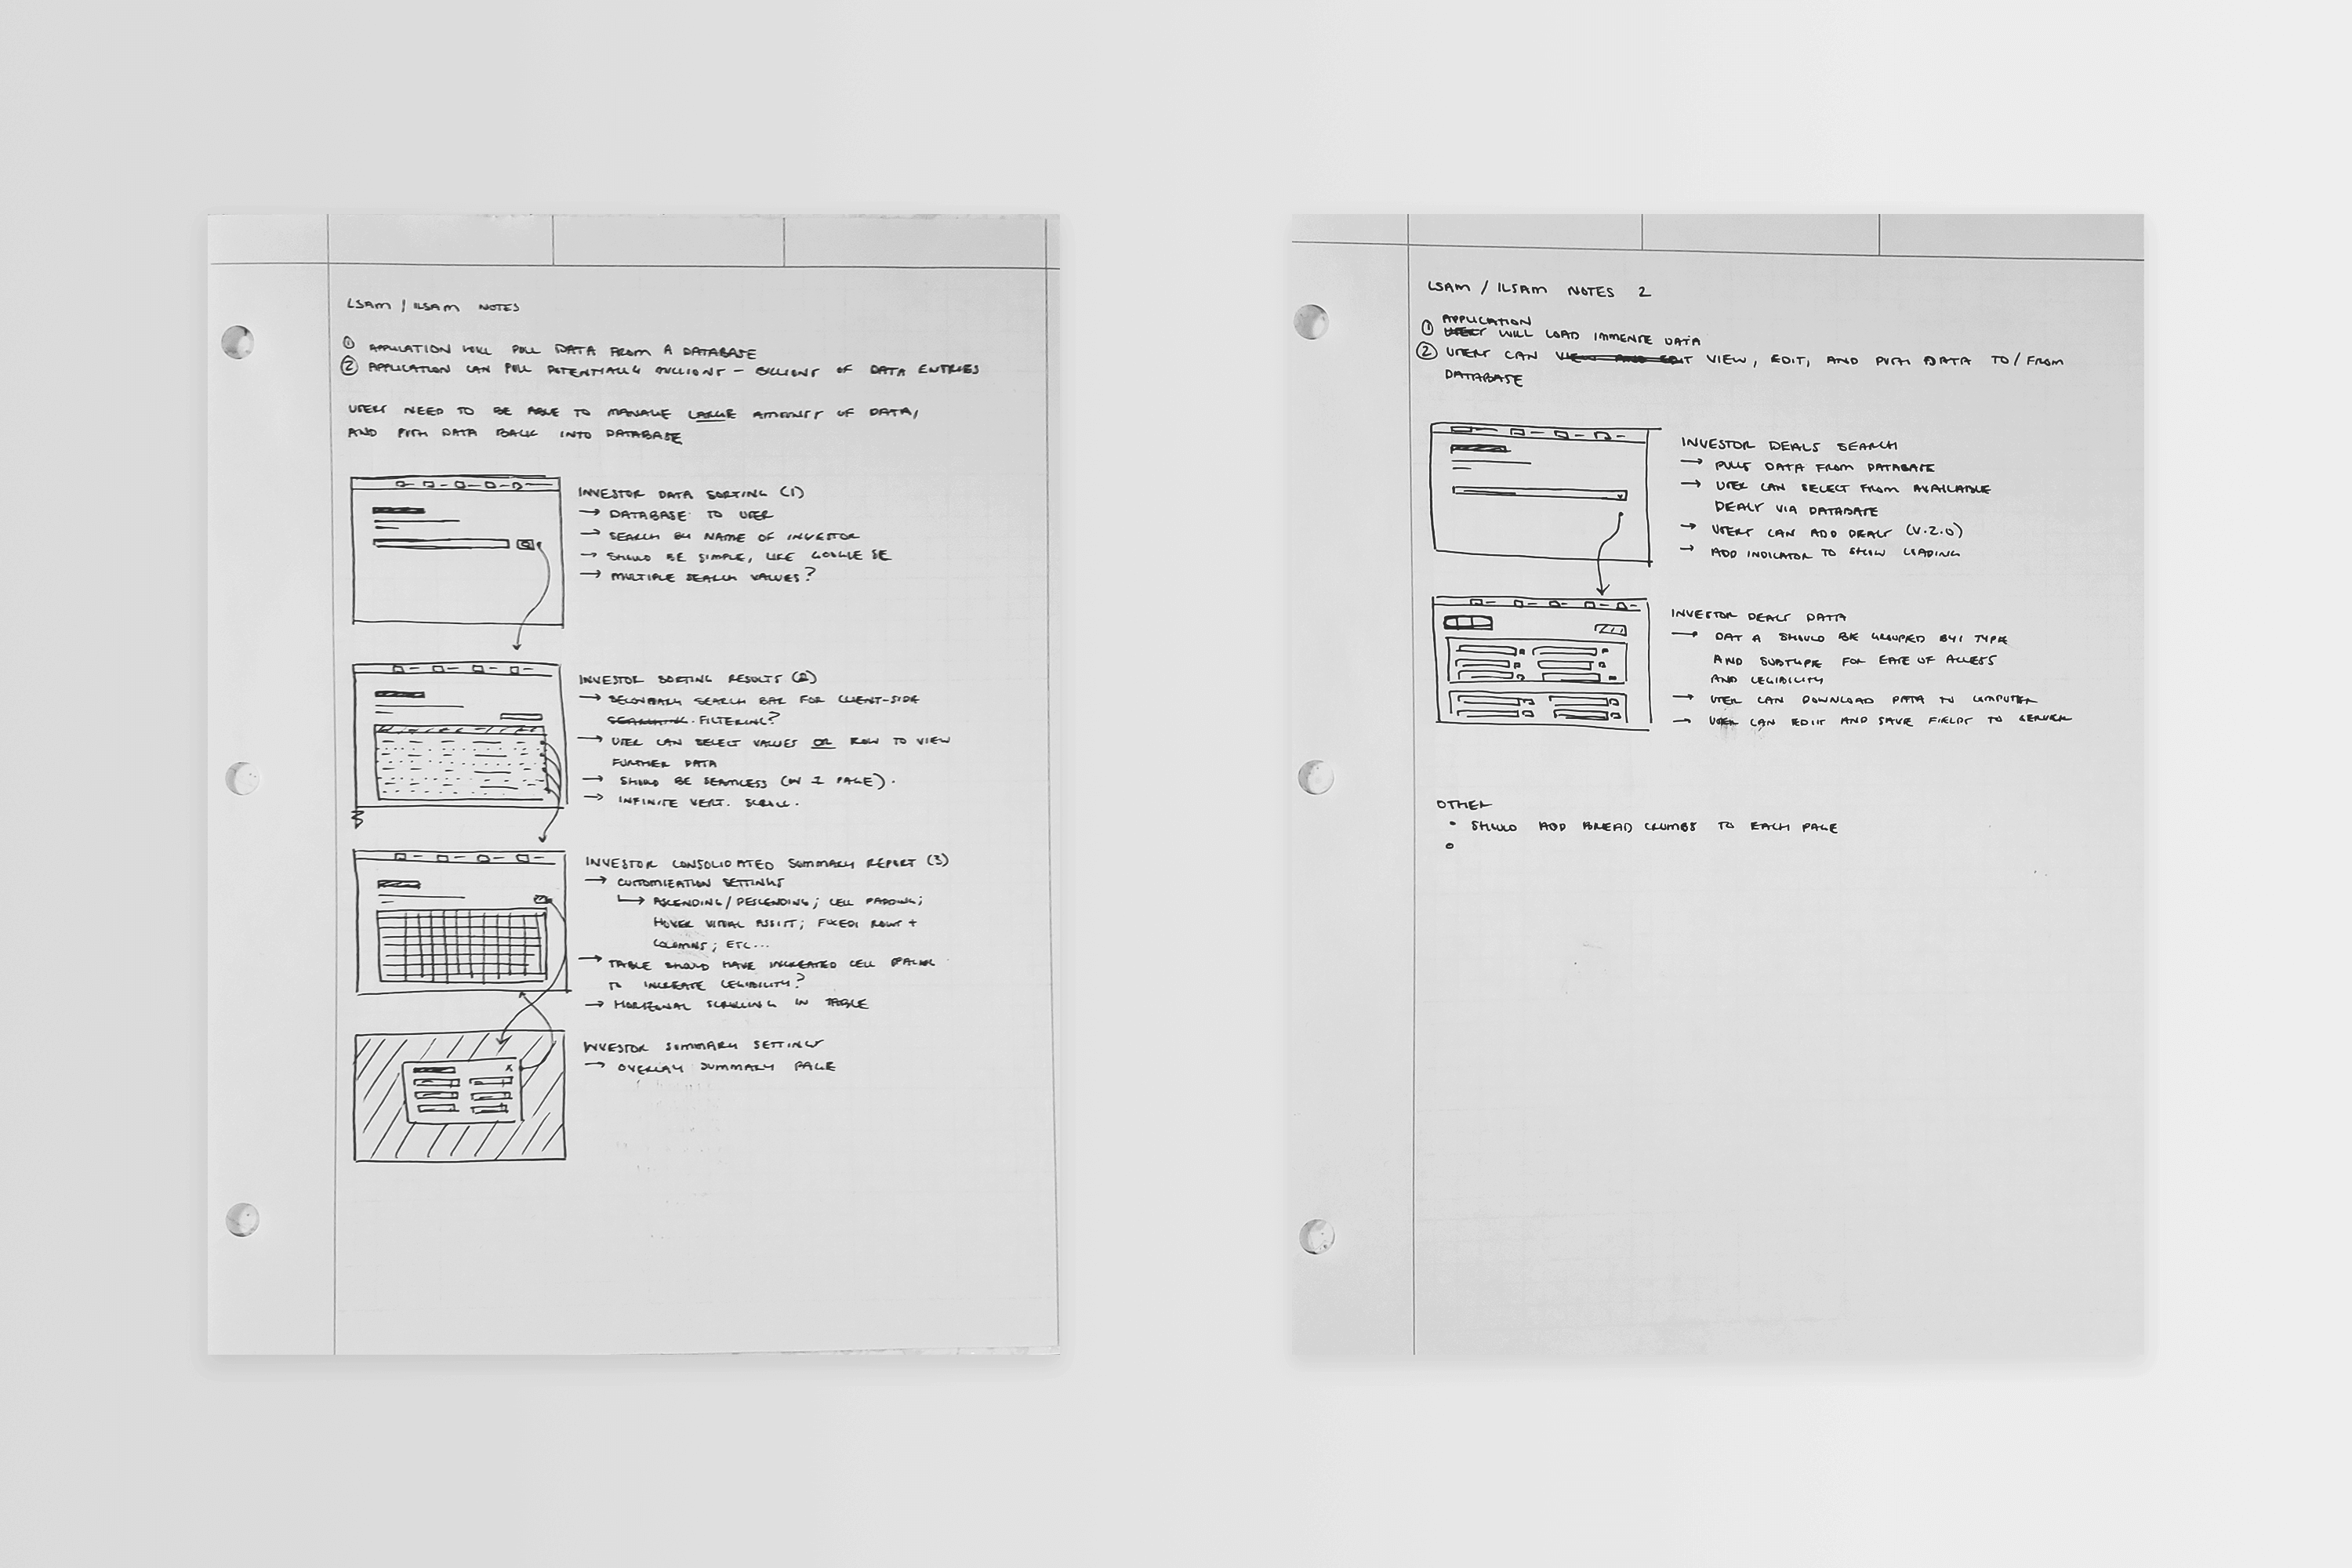 LSAM / ILSAM NOTES
① APPLICATION WILL PULL DATA FROM A DATABASE
② APPLICATION CAN PULL POTENTIALLY MILLIONS - BILLIONS OF DATA ENTRIES
USERS NEED TO BE ABLE TO MANAGE LARGE AMOUNTS OF DATA,
AND PUSH DATA BACK INTO DATABASE
INVESTOR DATA SORTING (1)
→ DATABASE TO USER
→ SEARCH BY NAME OF INVESTOR
→ SHOULD BE SIMPLE, LIKE GOOGLE SE
→ MULTIPLE SEARCH VALUES?
INVESTOR SORTING RESULTS (2)
→ SECONDARY SEARCH BAR FOR CLIENT-SIDE
SEARCHING. FILTERING?
→ USER CAN SELECT VALUES OR ROW TO VIEW
FURTHER DATA
→ SHOULD BE SEAMLESS (ON 1 PAGE).
→ INFINITE VERT. SCROLL.
INVESTOR CONSOLIDATED SUMMARY REPORT (3)
→ CUSTOMIZATION SETTINGS
↳ ASCENDING / DESCENDING; CELL PADDING;
HOVER VISUAL ASSIST; FIXED ROWS +
COLUMNS; ETC...
→ TABLE SHOULD HAVE INCREASED CELL
TO INCREASE LEGIBILITY?
→ HORIZONAL SCROLLING IN TABLE
INVESTOR SUMMARY SETTINGS
→ OVERLAY SUMMARY PAGE
LSAM / ILSAM NOTES 2
APPLICATION
① USERS WILL LOAD IMMENSE DATA
② USERS CAN VIEW AND EDIT VIEW, EDIT, AND PUSH DATA TO / FROM
DATABASE
INVESTOR DEALS SEARCH
→ PULLS DATA FROM DATABASE
→ USER CAN SELECT FROM AVAILABLE
DEALS VIA DATABASE
→ USERS CAN ADD DEALS (V.2.0)
→ ADD INDICATOR TO SHOW LOADING
INVESTOR DEALS DATA
→ DATA SHOULD BE GROUPED BY: TYPE
AND SUBTYPE FOR EASE OF ACCESS
AND LEGIBILITY
→ USER CAN DOWNLOAD DATA TO COMPUTER
→ USER CAN EDIT AND SAVE FIELDS TO SERVER
OTHER
• SHOULD ADD BREAD CRUMBS TO EACH PAGE